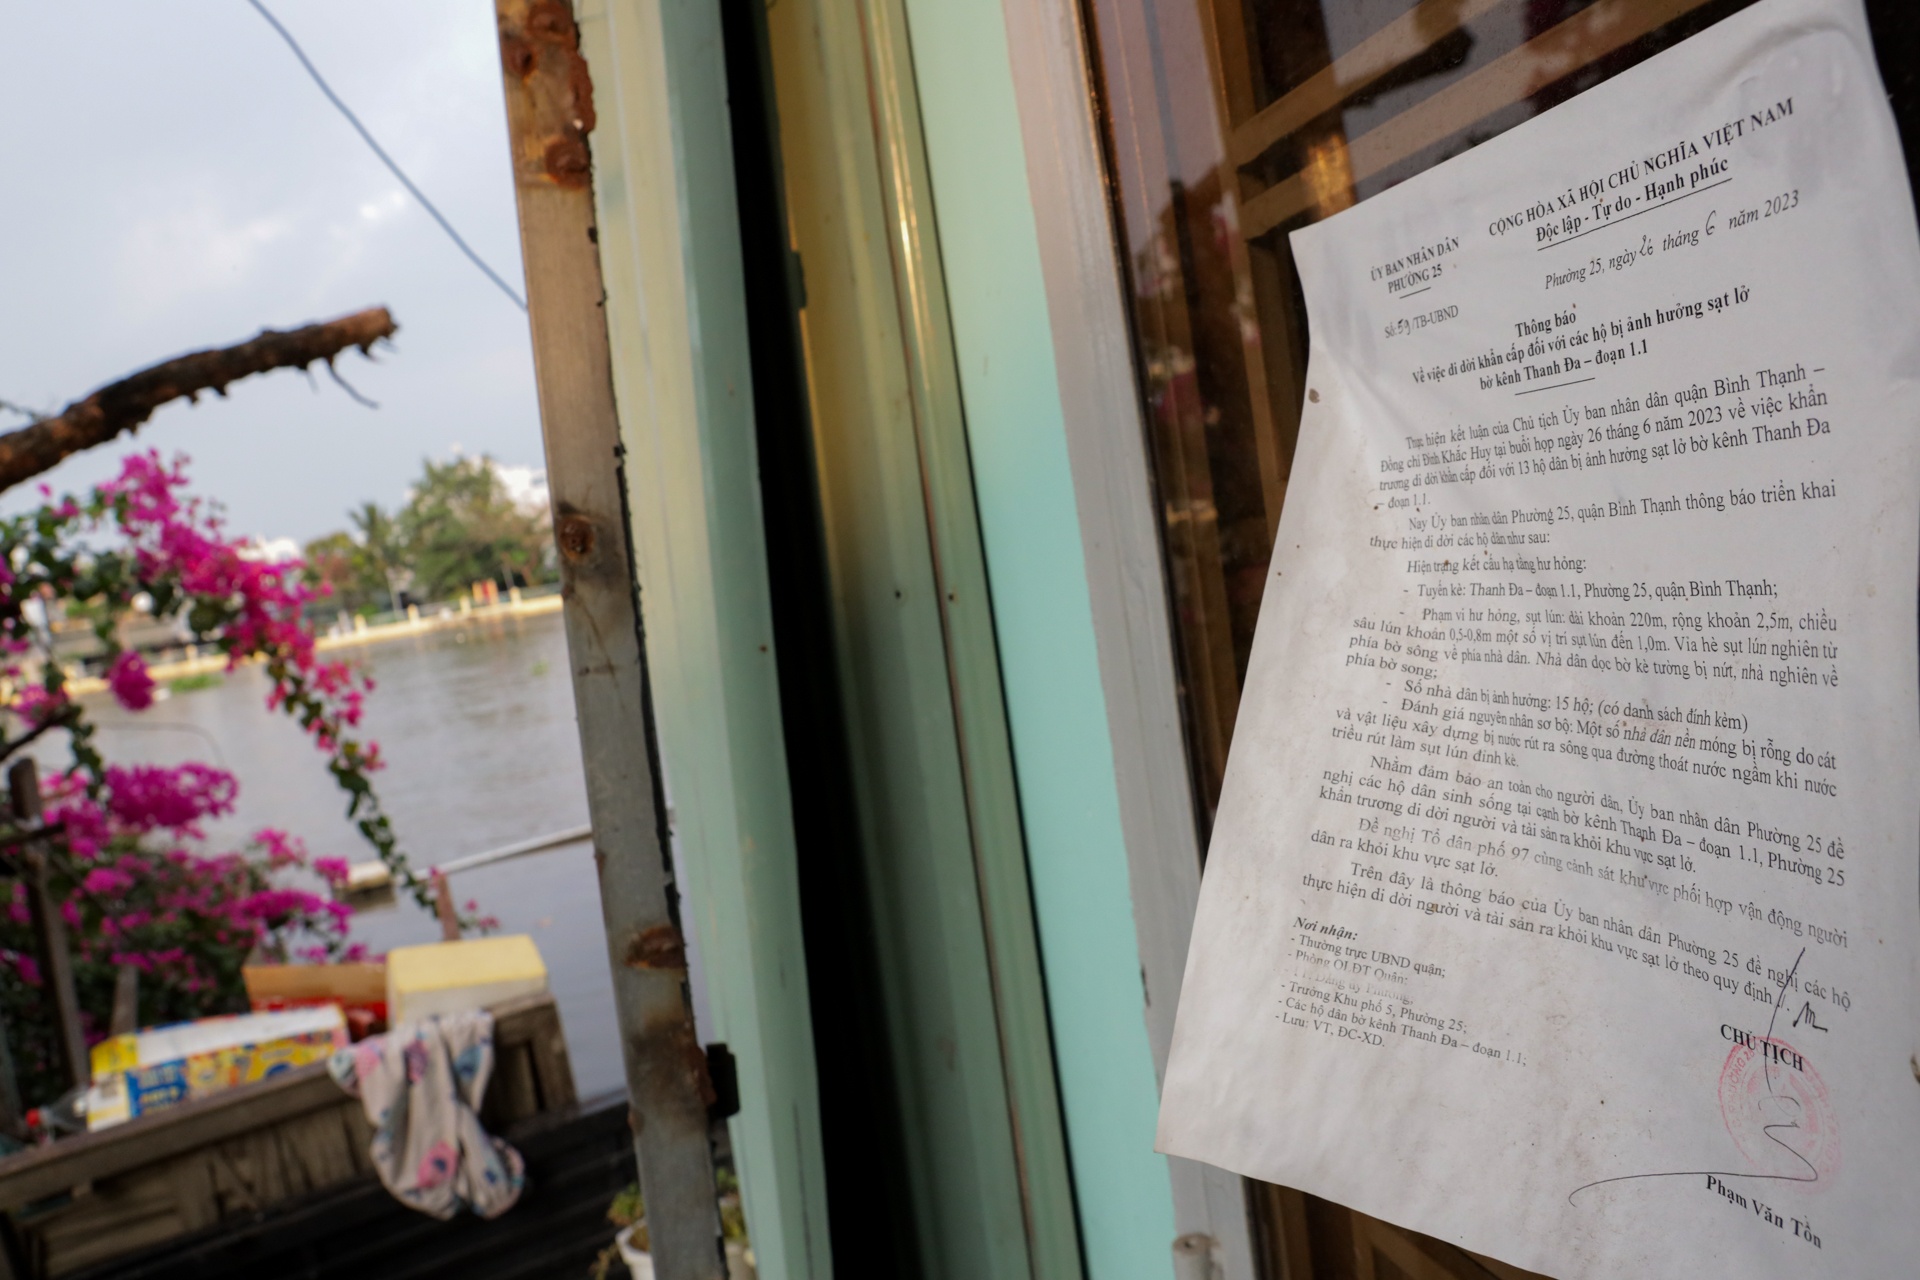 ỦY BAN NHÂN DÂN
PHƯỜNG 25
CỘNG HÒA XÃ HỘI CHỦ NGHĨA VIỆT NAM
Độc lập - Tự do - Hạnh phúc
Số: 59/TB-UBND
Phường 25, ngày 26 tháng 6 năm 2023
Thông báo
Về việc di dời khẩn cấp đối với các hộ bị ảnh hưởng sạt lở
bờ kênh Thanh Đa – đoạn 1.1
Thực hiện kết luận của Chủ tịch Ủy ban nhân dân quận Bình Thạnh –
Đồng chí Đinh Khắc Huy tại buổi họp ngày 26 tháng 6 năm 2023 về việc khẩn
trương di dời khẩn cấp đối với 13 hộ dân bị ảnh hưởng sạt lở bờ kênh Thanh Đa
– đoạn 1.1.
Nay Ủy ban nhân dân Phường 25, quận Bình Thạnh thông báo triển khai
thực hiện di dời các hộ dân như sau:
Hiện trạng kết cấu hạ tầng hư hỏng:
- Tuyến kè: Thanh Đa – đoạn 1.1, Phường 25, quận Bình Thạnh;
- Phạm vi hư hỏng, sụt lún: dài khoản 220m, rộng khoản 2,5m, chiều
sâu lún khoản 0,5-0,8m một số vị trí sụt lún đến 1,0m. Vỉa hè sụt lún nghiên từ
phía bờ sông về phía nhà dân. Nhà dân dọc bờ kè tường bị nứt, nhà nghiên về
phía bờ song;
- Số nhà dân bị ảnh hưởng: 15 hộ; (có danh sách đính kèm)
- Đánh giá nguyên nhân sơ bộ: Một số nhà dân nền móng bị rỗng do cát
và vật liệu xây dựng bị nước rút ra sông qua đường thoát nước ngầm khi nước
triều rút làm sụt lún đỉnh kè.
Nhằm đảm bảo an toàn cho người dân, Ủy ban nhân dân Phường 25 đề
nghị các hộ dân sinh sống tại cạnh bờ kênh Thanh Đa – đoạn 1.1, Phường 25
khẩn trương di dời người và tài sản ra khỏi khu vực sạt lở.
Đề nghị Tổ dân phố 97 cùng cảnh sát khu vực phối hợp vận động người
dân ra khỏi khu vực sạt lở.
Trên đây là thông báo của Ủy ban nhân dân Phường 25 đề nghị các hộ
thực hiện di dời người và tài sản ra khỏi khu vực sạt lở theo quy định./.
Nơi nhận:
- Thường trực UBND quận;
- Phòng QLĐT Quận;
- Trưởng Khu phố 5, Phường 25;
- Các hộ dân bờ kênh Thanh Đa – đoạn 1.1;
- Lưu: VT, ĐC-XD.
CHỦ TỊCH
Phạm Văn Tồn